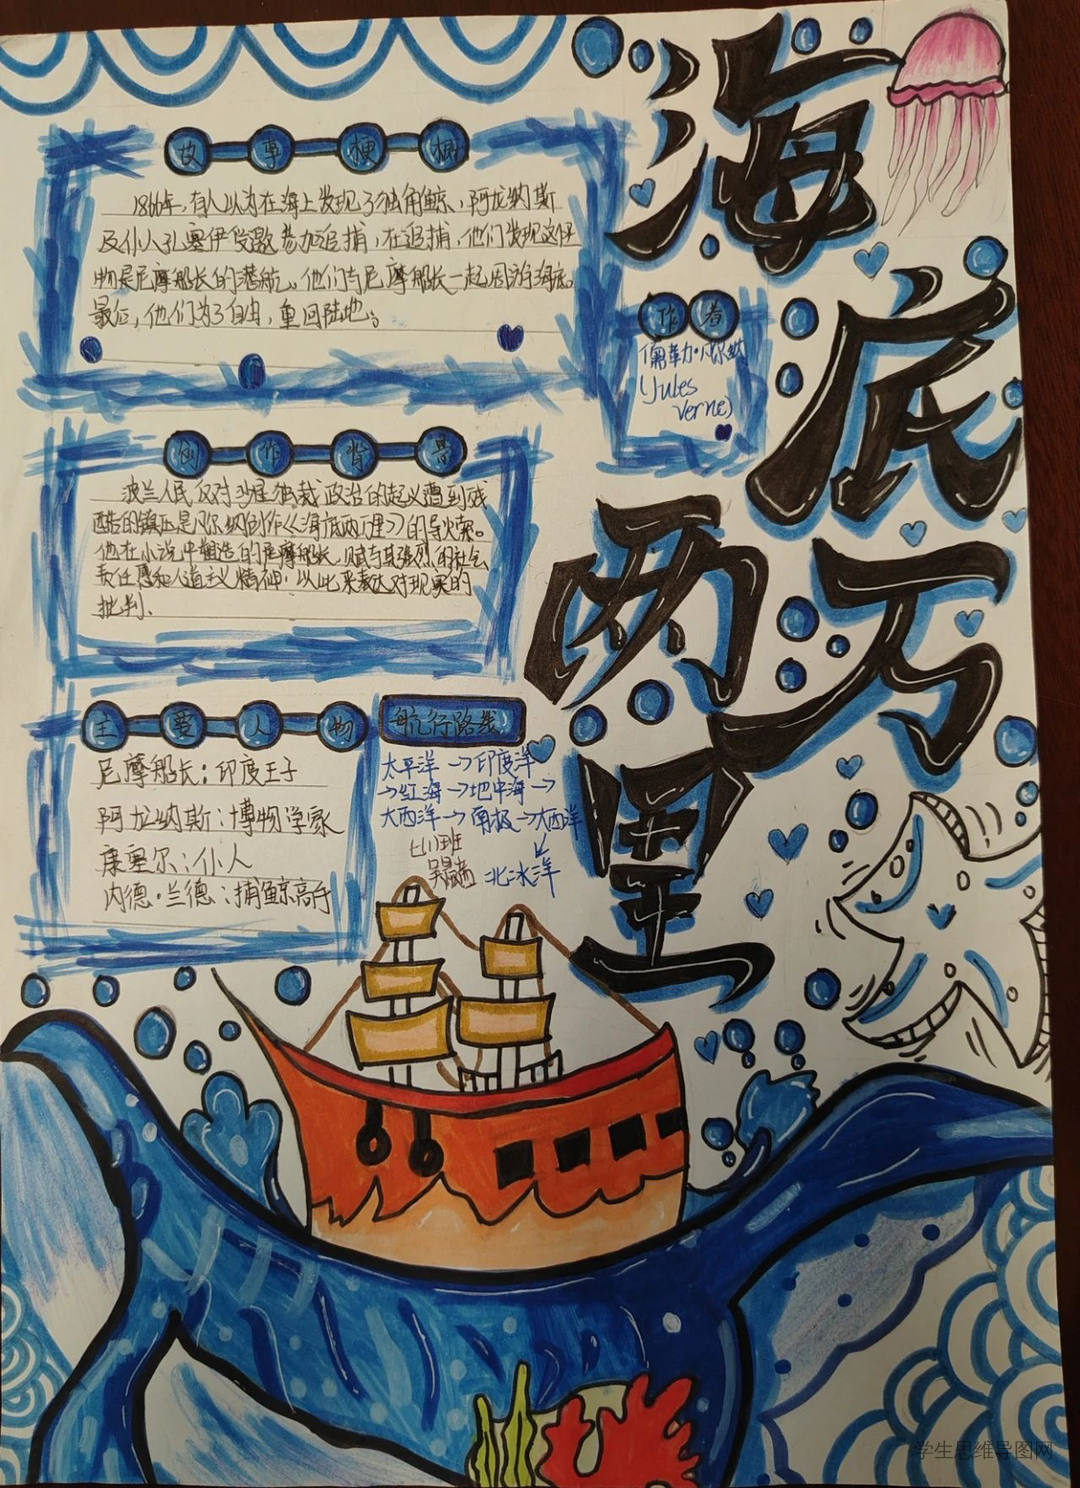 海底两万里
故事梗概
1866年,有人以为在海上发现了独角鲸,阿龙纳斯
及仆人孔塞伊受邀参加追捕,在追捕,他们发现这怪
物是尼摩船长的潜艇。他们与尼摩船长一起周游海底。
最后,他们为了自由,重回陆地。
作者
儒勒·凡尔纳
(Jules
Verne)
创作背景
波兰人民反对沙皇独裁政治的起义遭到残
酷的镇压是凡尔纳创作《海底两万里》的导火索。
他在小说中塑造的尼摩船长,赋予其强烈的社会
责任感和人道主义精神,以此来表达对现实的
批判.
主要人物
尼摩船长:印度王子
阿龙纳斯:博物学家
康塞尔:仆人
内德·兰德:捕鲸高手
航行路线
太平洋→印度洋
→红海→地中海→
大西洋→南极→大西洋
北冰洋
学生思维导图网